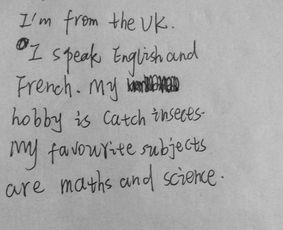 I'm from the UK.
I speak English and
French. My
hobby is catch insects.
My favourite subjects
are maths and science.